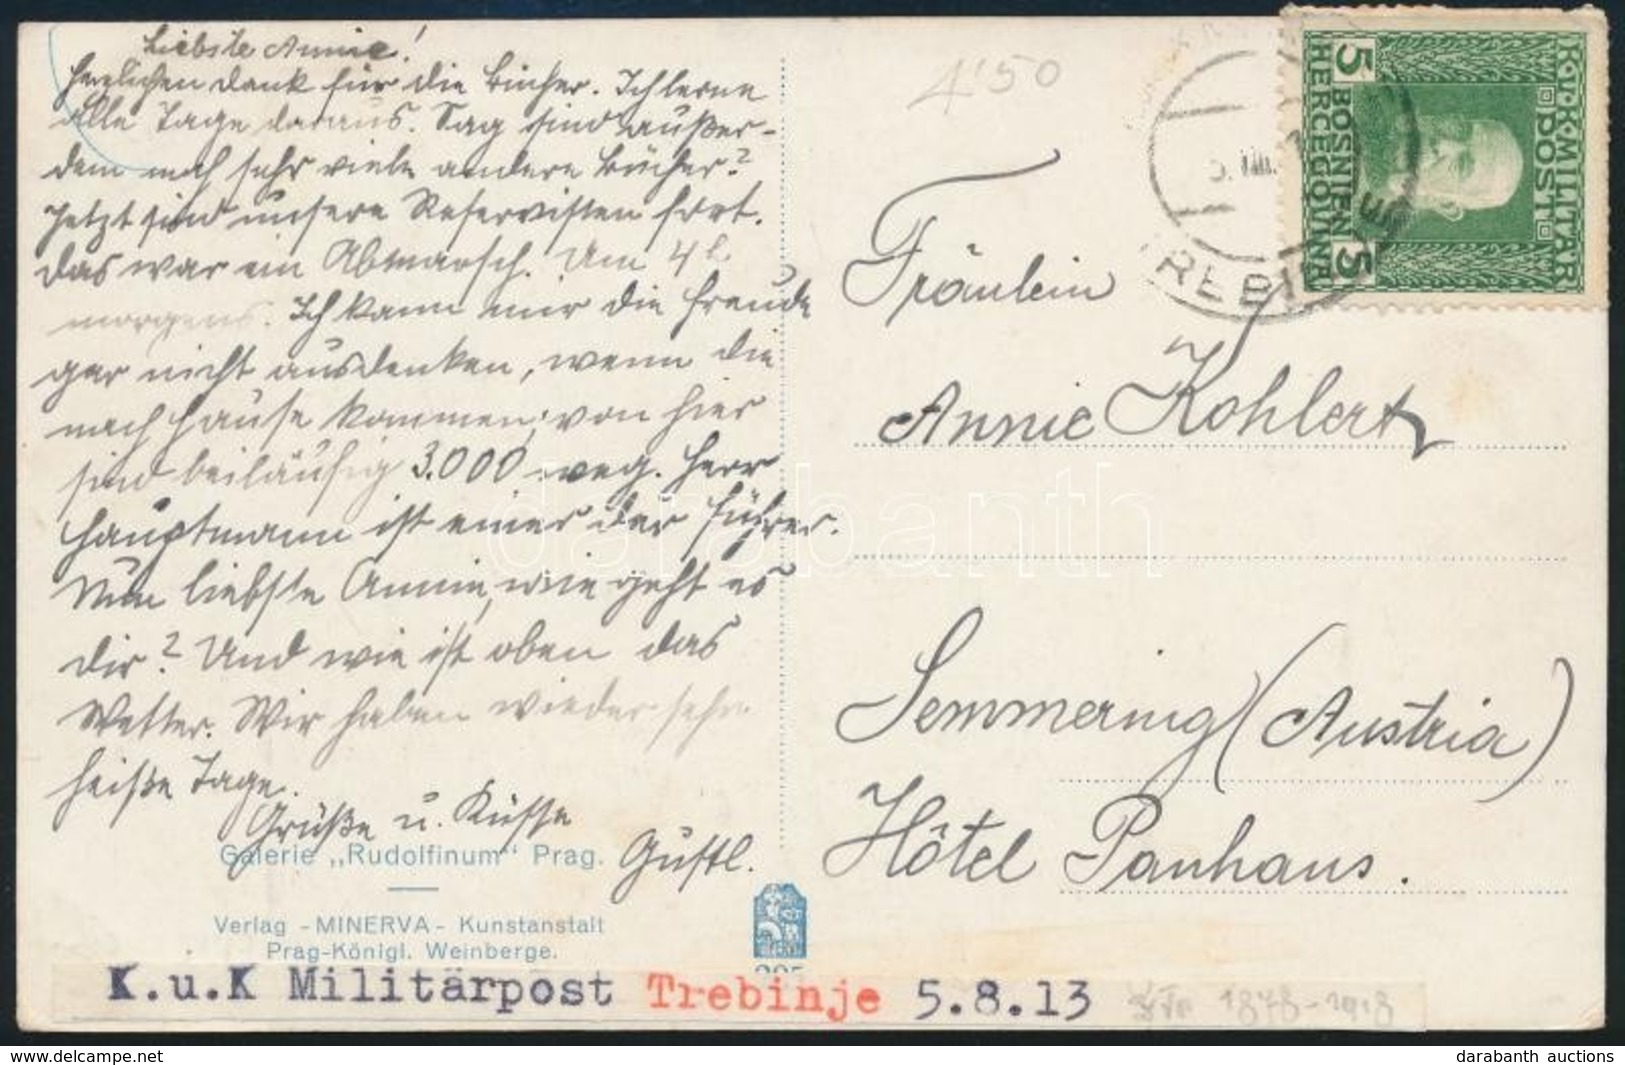 Liebste Annie!
Herzlichen Dank für die Bücher. Ich lerne
alle Tage daraus. Sag sind außer-
dem noch sehr viele andere Bücher?
Jetzt sind unsere Reservisten fort.
Das war ein Abmarsch. Um 4 h
morgens. Ich kann mir die Freude
gar nicht ausdenken, wenn die
nach Hause kommen; von hier
sind beiläufig 3.000 weg. Herr
Hauptmann ist einer der Führer.
Nun liebste Annie, wie geht es
dir? Und wie ist oben das
Wetter. Wir haben wieder sehr
heiße Tage.
Grüße u. Küsse
Gustl.
Galerie „Rudolfinum" Prag.
Verlag - MINERVA - Kunstanstalt
Prag-Königl. Weinberge.
4'50
K.u.K. MILITÄR
POST
BOSNIEN
HERCEGOVINA
5 5
Fräulein
Annie Kohlert
Semmering (Austria)
Hôtel Panhans.
K.u.K Militärpost Trebinje 5.8.13
1878-1918
darabanth
darabanth-auctions.com
darabanth auctions